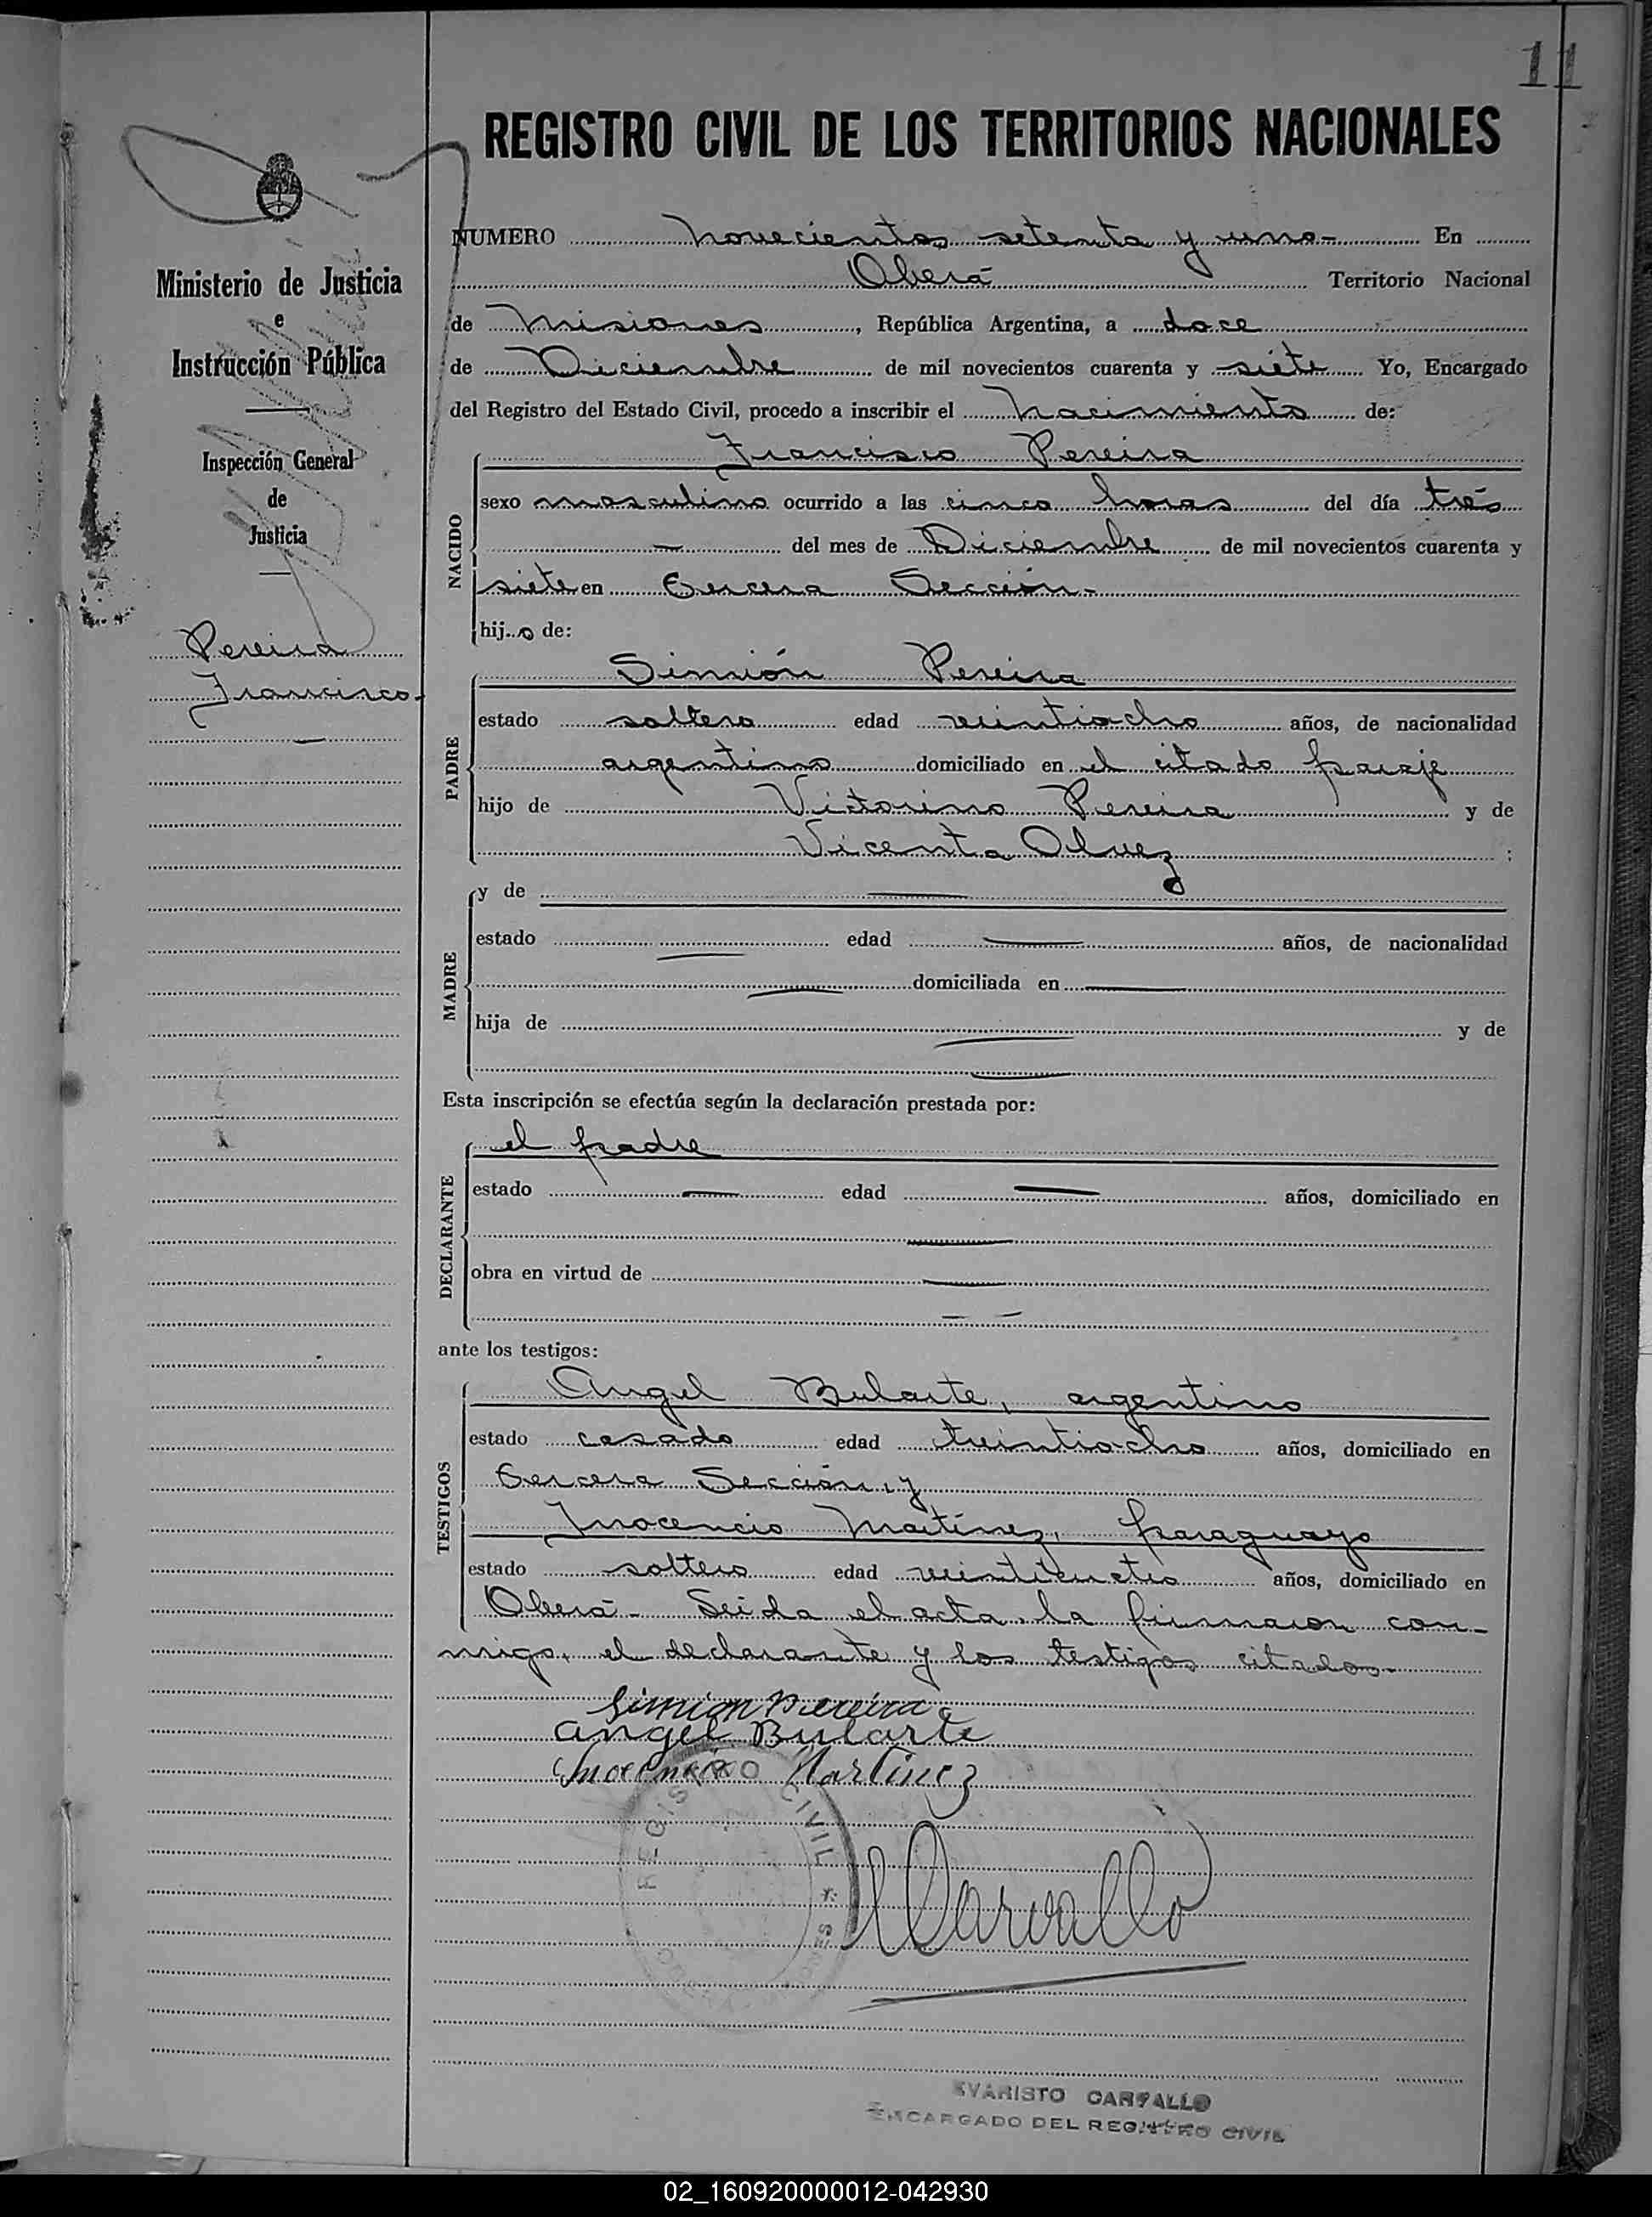 11
REGISTRO CIVIL DE LOS TERRITORIOS NACIONALES
Ministerio de Justicia
e
Instrucción Pública
Inspección General
de
Justicia
Pereira
Francisco
NUMERO novecientos setenta y uno- En
Oberá Territorio Nacional
de Misiones, República Argentina, a doce
de Diciembre de mil novecientos cuarenta y siete Yo, Encargado
del Registro del Estado Civil, procedo a inscribir el Nacimiento de:
NACIDO
Francisco Pereira
sexo masculino ocurrido a las cinco horas del día tres
del mes de Diciembre de mil novecientos cuarenta y
siete en Tercera Sección-
hijo de:
PADRE
Simión Pereira
estado soltero edad veintiocho años, de nacionalidad
argentino domiciliado en el citado paraje
hijo de Victorino Pereira y de
Vicenta Olvez ;
MADRE
y de
estado edad años, de nacionalidad
domiciliada en
hija de y de
Esta inscripción se efectúa según la declaración prestada por:
DECLARANTE
el padre
estado edad años, domiciliado en
obra en virtud de
ante los testigos:
TESTIGOS
Angel Bularte, argentino
estado casado edad treintiocho años, domiciliado en
Tercera Sección, y
Inocencio Martínez, paraguayo
estado soltero edad años, domiciliado en
Oberá- Leida el acta, la firmaron con-
migo, el declarante y los testigos citados-
Simion Pereira
Angel Bularte
Inocencio Martinez
REGISTRO CIVIL *
OBERA - MISIONES
Carvallo
EVARISTO CARVALLO
ENCARGADO DEL REGISTRO CIVIL
02_160920000012-042930